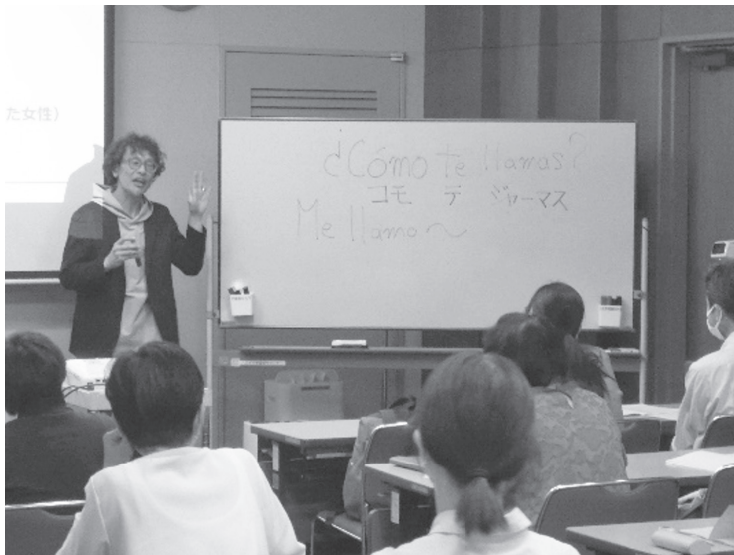 た女性）
¿Cómo te llamas?
コモ テ ジャーマス
Me llamo ～